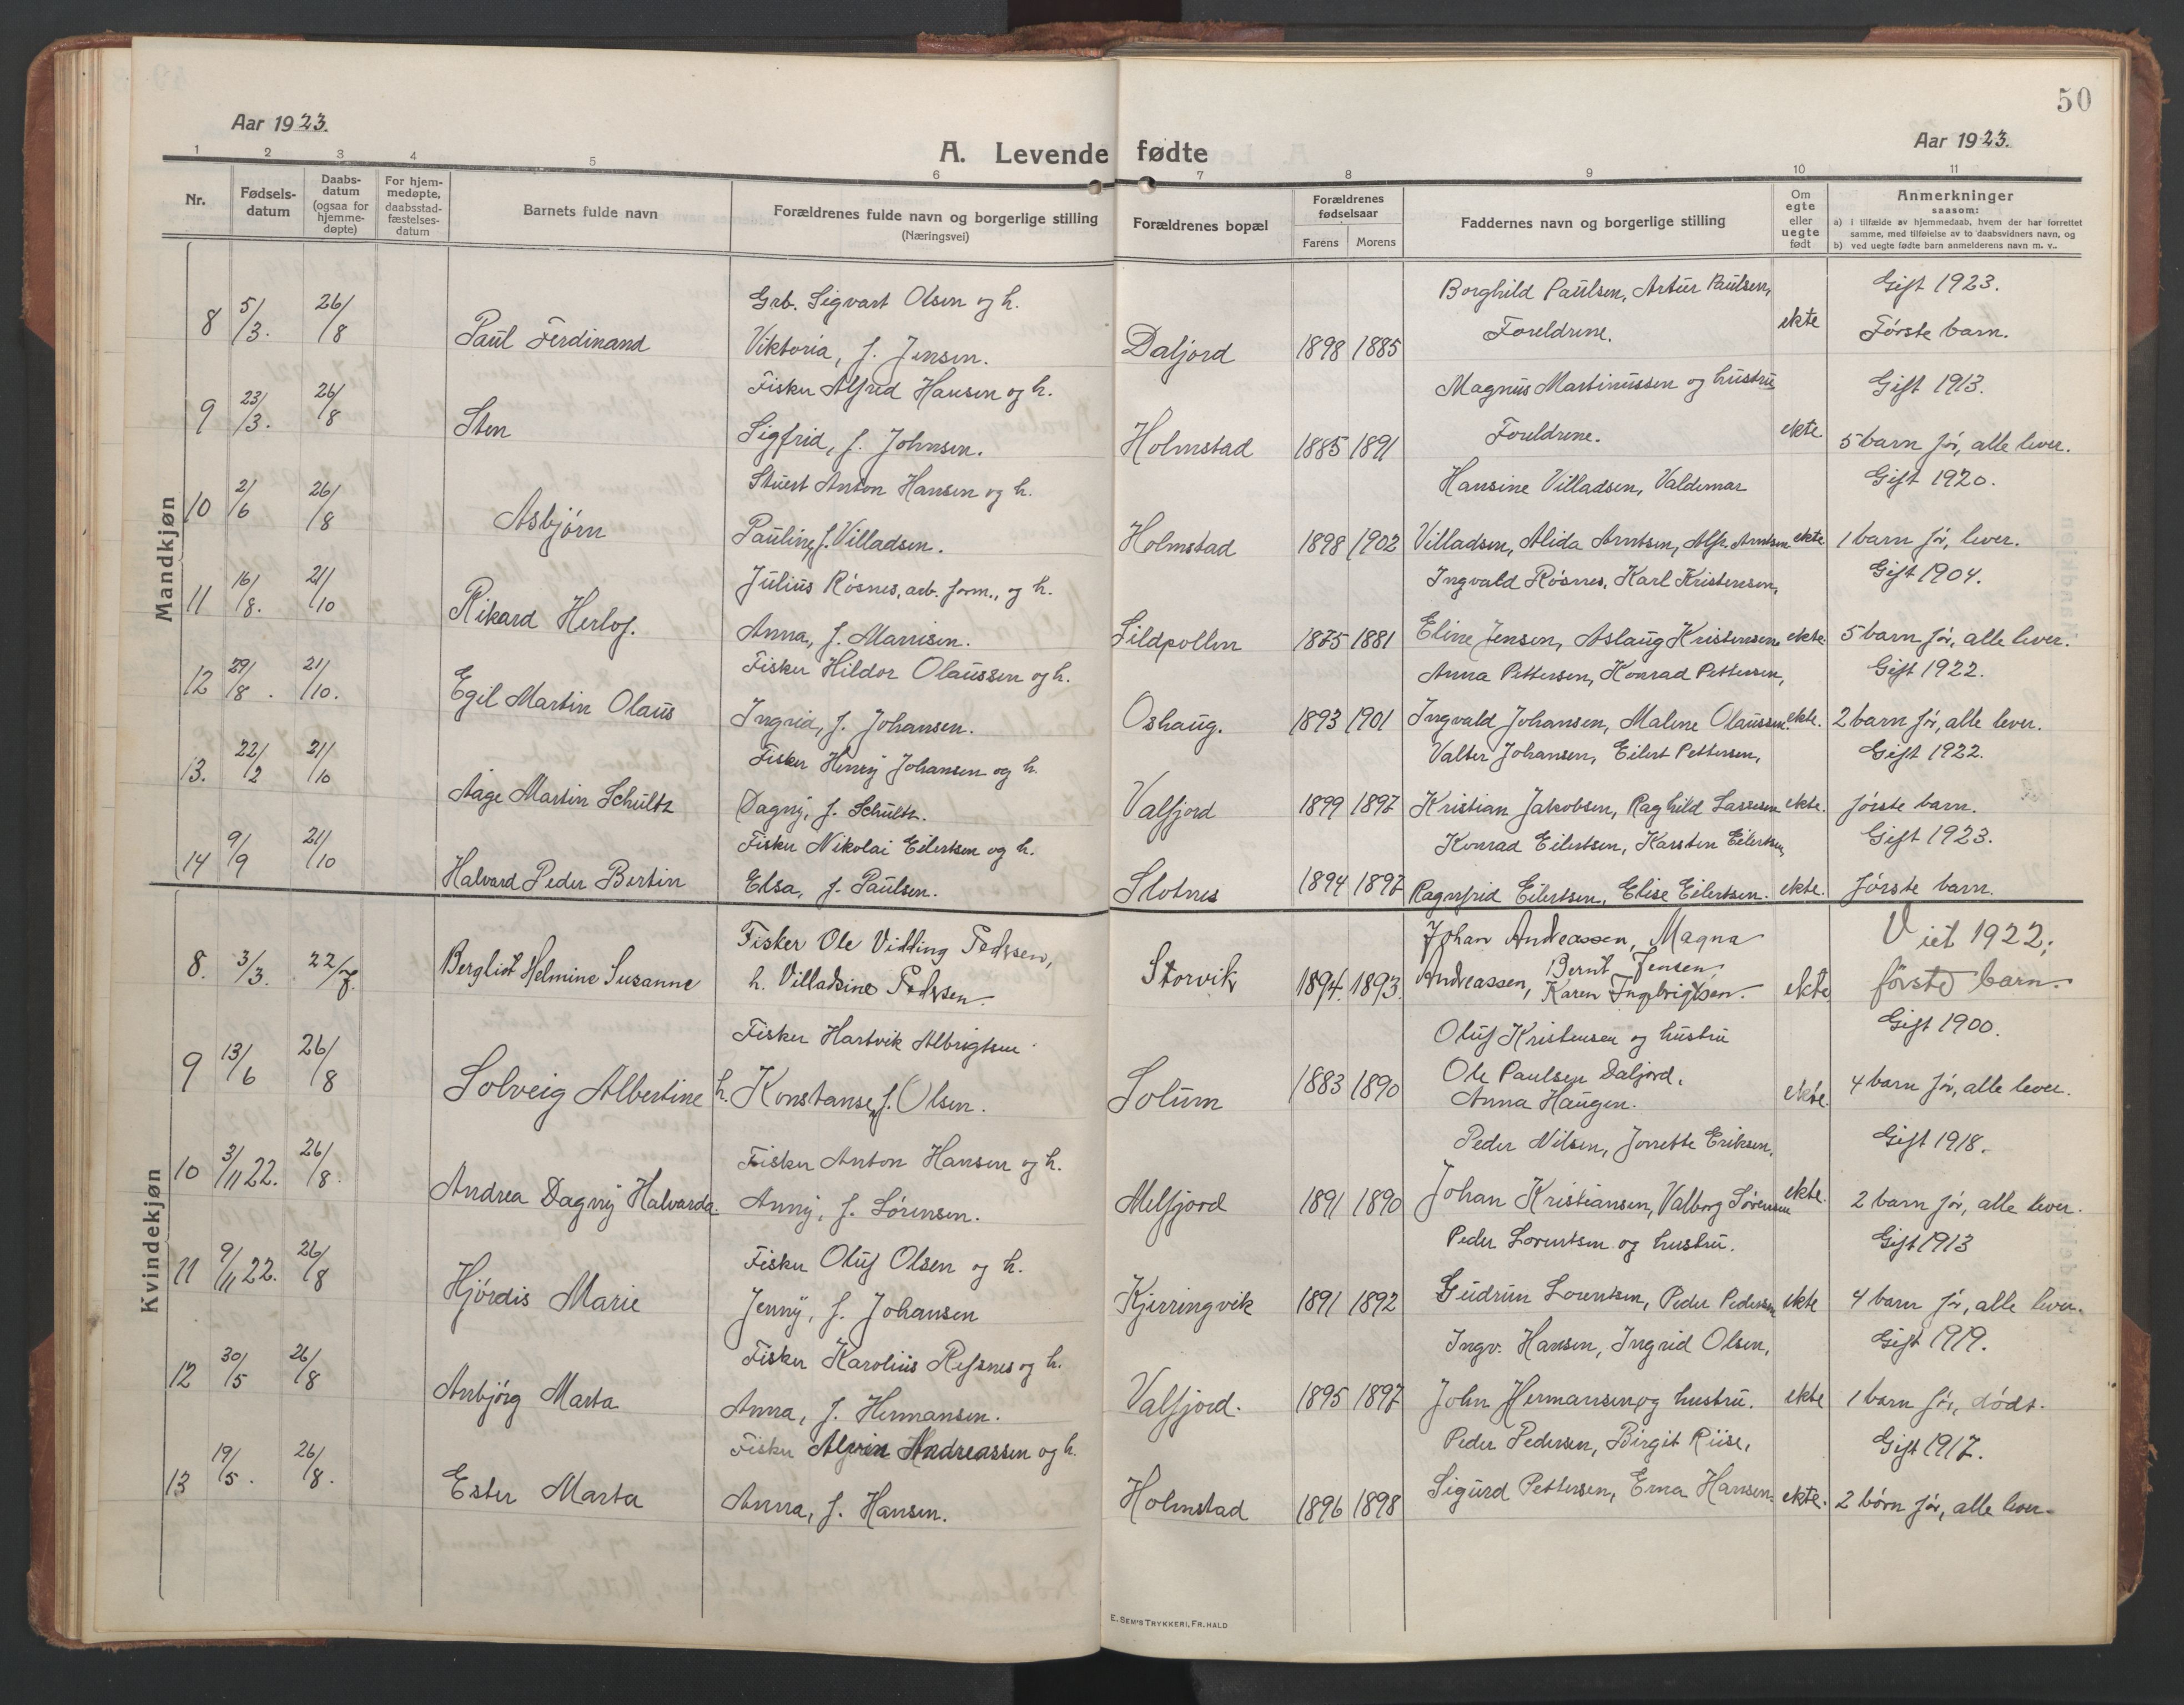 50
Aar 1923.
Aar 1923.
A. Levende fødte
1 2 3 4 5 6 7 8 9 10 11
Nr.
Fødsels-
datum
Daabs-
datum
(ogsaa for
hjemme-
døpte)
For hjem-
medøpte,
daabsstad-
fæstelses-
datum
Barnets fulde navn
Forældrenes fulde navn og borgerlige stilling
(Næringsvei)
Forældrenes bopæl
Forældrenes
fødselsaar
Farens Morens
Faddernes navn og borgerlige stilling
Om
egte
eller
uegte
født
Anmerkninger
saasom:
a) i tilfælde av hjemmedaab, hvem der har forrettet
samme, med tilføielse av to daabsvidners navn, og
b) ved uegte fødte barn anmelderens navn m. v.
Mandkjøn
Grb. Sigvart Olsen og h. Borghild Paulsen, Artur Paulsen, Gift 1923.
8 5/3. 26/8 Paul Ferdinand Viktoria, f. Jensen. Daljord 1898 1885 Foreldrene. ekte Første barn.
Fisker Alfred Hansen og h. Magnus Martinussen og hustru Gift 1913.
9 23/3. 26/8 Sten Sigfrid, f. Johnsen. Holmstad 1885 1891 Foreldrene. ekte. 5 barn før, alle lever.
Stuert Anton Hansen og h. Hansine Villadsen, Valdemar Gift 1920.
10 2/6 26/8 Asbjørn Pauline, f. Villadsen. Holmstad 1898 1902 Villadsen, Alida Arntsen, Alfr. Arntsen ekte 1 barn før, lever.
Julius Røsnes, arb. form., og h. Ingvald Røsnes, Karl Kristensen, Gift 1904.
11 16/8. 21/10 Rikard Herlof. Anna, f. Marrisen. Sildpollen 1875 1881 Eline Jensen, Aslaug Kristensen ekte. 5 barn før, alle lever.
Fisker Hildor Olaussen og h. Anna Pettersen, Konrad Pettersen, Gift 1922.
12 29/8. 21/10. Egil Martin Olaus Ingrid, f. Johansen. Oshaug. 1893 1901 Ingvald Johansen, Malene Olaussen. ekte. 2 barn før, alle lever.
Fisker Henry Johansen og h. Valter Johansen, Eilert Pettersen, Gift 1922.
13. 22/2 21/10 Aage Martin Schultz Dagny, f. Schultz. Valfjord 1899 1897 Kristian Jakobsen, Raghild Lassesen ekte. første barn.
Fisker Nikolai Eilertsen og h. Konrad Eilertsen, Karsten Eilertsen, Gift 1923.
14 9/9 21/10 Halvard Peder Bertin Elsa, f. Paulsen. Slotnes 1894 1897 Ragnfrid Eilertsen, Elise Eilertsen. ekte. første barn.
Kvindekjøn
Fisker Ole Vidding Pedersen, Johan Andreassen, Magna Viet 1922;
8. 3/3. 22/7. Bergliot Helmine Susanne h. Villadsine Pedersen Storvik 1894. 1893. Andreassen, Bernt Jensen, Karen Ingebrigtsen. ekte første barn.
Fisker Hartvik Albrigtsen Oluf Kristensen og hustru Gift 1900.
9 13/6 26/8 Solveig Albertine h. Konstanse, f. Olsen. Solum 1883 1890 Ole Paulsen Daljord, ekte. 4 barn før, alle lever.
Anna Haugen.
Fisker Anton Hansen og h. Peder Nilsen, Jorette Eriksen, Gift 1918.
10 3/11 22. 26/8. Andrea Dagny Halvarda. Anny, f. Sørensen. Melfjord 1891 1890 Johan Kristiansen, Valborg Sørensen ekte. 2 barn før, alle lever.
Fisker Oluf Olsen og h. Peder Lorentsen og hustru. Gift 1913
11 9/11 22. 26/8 Hjørdis Marie Jenny, f. Johansen Kjerringvik 1891 1892 Gudrun Lorentsen, Peder Pedersen ekte 4 barn før, alle lever.
Fisker Karolius Refsnes og h. Ingv. Hansen, Ingrid Olsen, Gift 1919.
12 30/5 26/8 Anbjørg Marta Anna, f. Hermansen. Valfjord. 1895 1897 John Hermansen og hustru. ekte 1 barn før, dødt.
Fisker Alvin Andreassen og h. Peder Pedersen, Birgit Riise, Gift 1917.
13 19/5. 26/8. Ester Marta Anna, f. Hansen. Holmstad 1896 1898 Sigurd Pettersen, Erna Hansen. ekte. 2 børn før, alle lever.
E. SEM'S TRYKKERI, FR.HALD